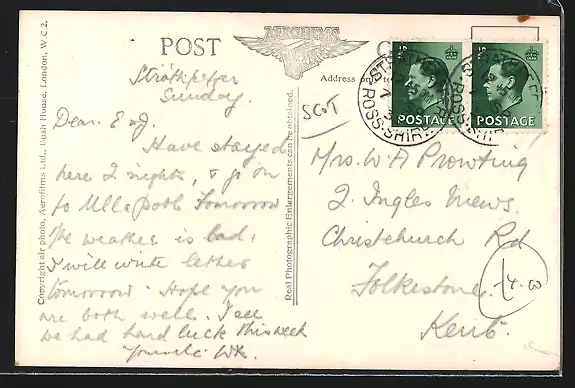 POST
AEROFILMS
Address only
Strathpeffer
Sunday.
Dear E & J.
Have stayed
here 2 nights, & go on
to Ullapool Tomorrow
The weather is bad.
I will write letter
tomorrow. Hope you
are both well. I see
we had hard luck this week
Copyright air photo, Aerofilms Ltd., Bush House, London, W C 2.
Real Photographic Enlargements can be obtained.
SCOT
POSTAGE
POSTAGE
ROSS-SHIRE
Mrs. W A Prowting
2. Ingles Mews.
Christchurch Rd
Folkestone.
Kent.